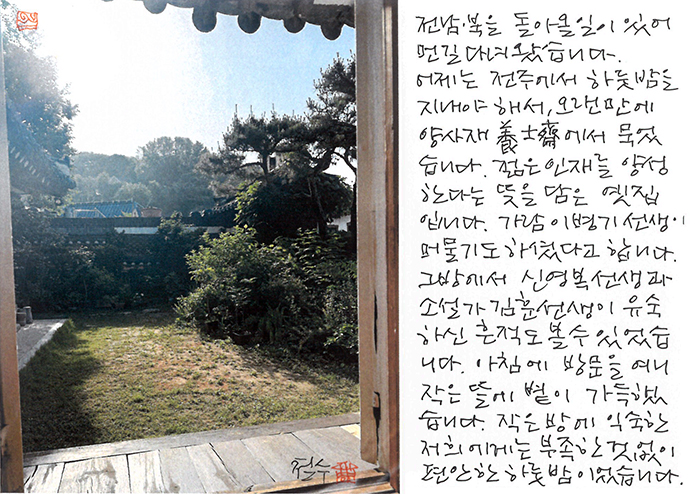 전남·북을 돌아올일이 있어
먼길 다녀왔습니다.
어제는 전주에서 하룻밤을
지내야 해서, 오랜만에
양사재 養士齋에서 묵었
습니다. 젊은인재를 양성
한다는 뜻을 담은 옛집
입니다. 가람 이병기선생이
머물기도하셨다고 합니다.
그방에서 신영복선생과
소설가 김훈선생이 유숙
하신 흔적도 볼수 있었습
니다. 아침에 방문을 여니
작은 뜰에 볕이 가득했
습니다. 작은 방에 익숙한
저희에게는 부족한것 없이
편안한 하룻밤이었습니다.
철수